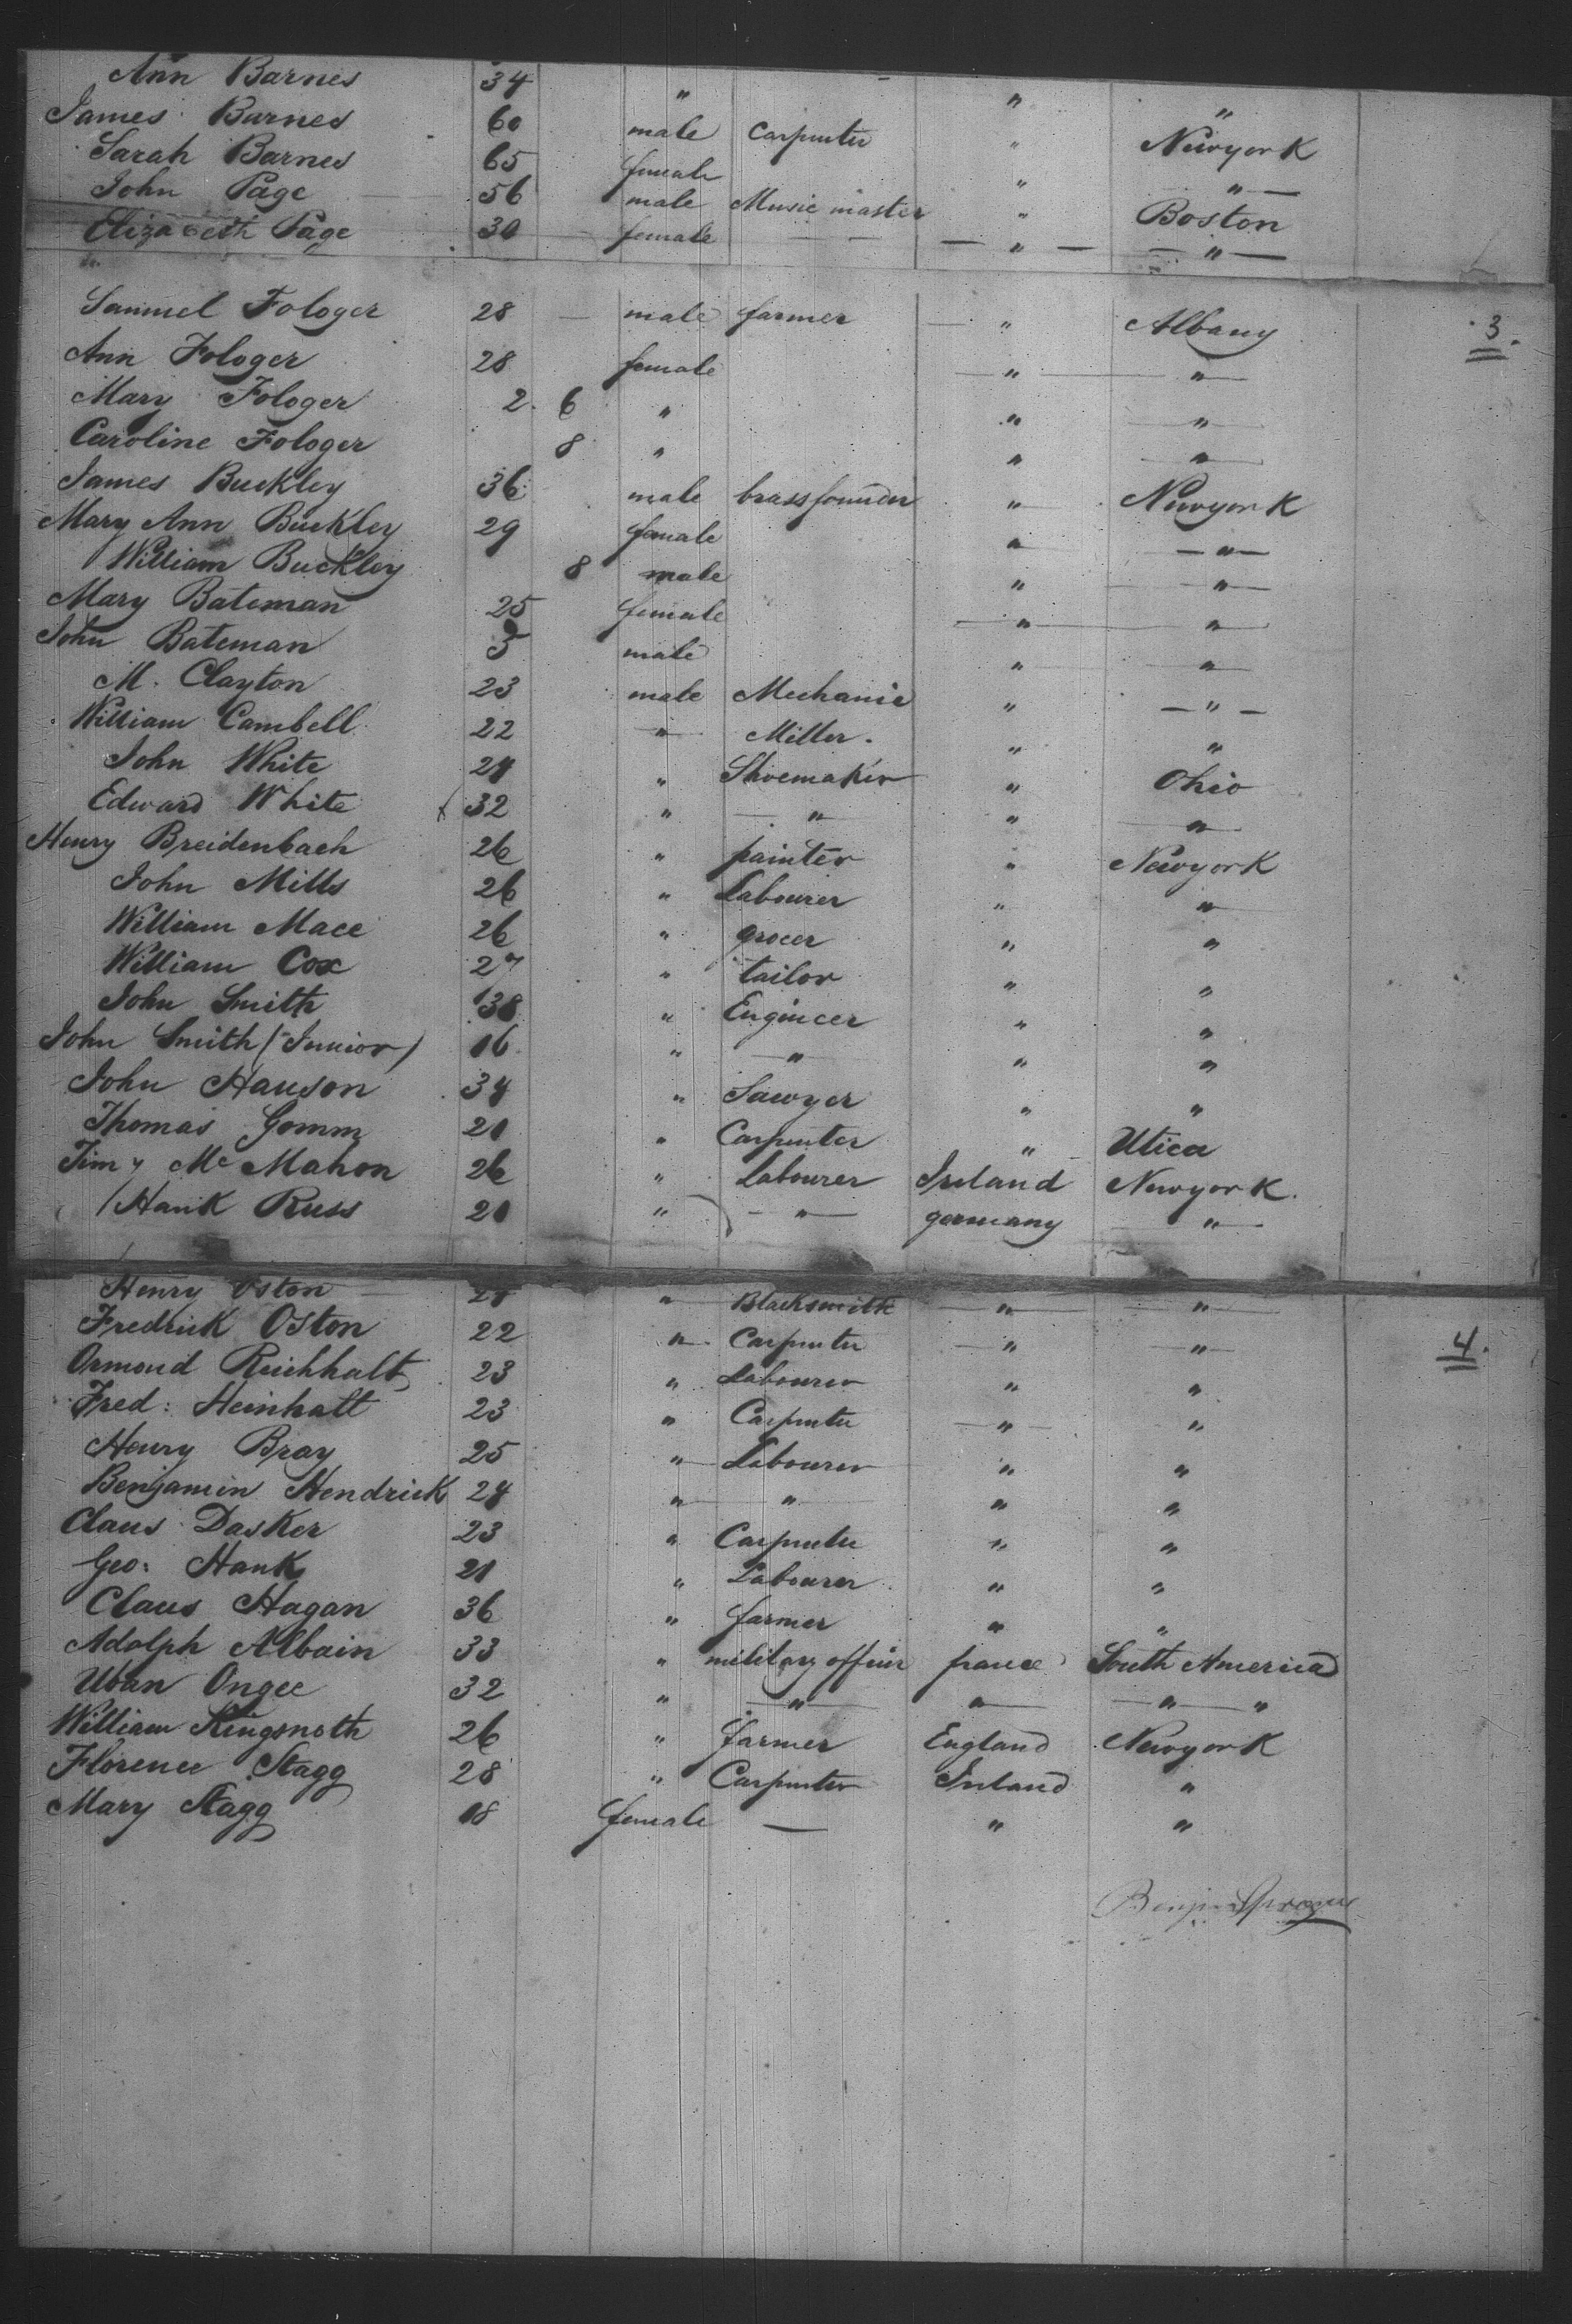 Ann Barnes 34 " " "
James Burnes 60 male Carpenter " Newyork
Sarah Barnes 65 female " "
John Page 56 male Music master " Boston
Elizabeth Page 30 female " "
Samuel Fologer 28 male farmer " Albany 3.
Ann Fologer 28 female " "
Mary Fologer 2. 6 " " "
Caroline Fologer 8 " " "
James Buckley 36 male brassfounder " Newyork
Mary Ann Buckley 29 female " "
William Buckley 8 male " "
Mary Bateman 25 female " "
John Bateman 5 male " "
M. Clayton 23 male Mechanic " "
William Cambell 22 " Miller. " "
John White 24 " Shoemaker " Ohio
Edward White 32 " " " "
Henry Breidenbach 26 " painter " Newyork
John Mills 26 " Labourer " "
William Mace 26 " grocer " "
William Cox 27 " tailor " "
John Smith 38 " Engineer " "
John Smith (Junior) 16 " " " "
John Hauson 34 " Sawyer " "
Thomas Gomm 21 " Carpenter " Utica
Timy Mc Mahon 26 " Labourer Ireland Newyork.
Hank Russ 21 " " germany "
Henry Oston " Blacksmith " "
Fredrick Oston 22 " Carpenter " " 4.
Ormond Reichhalt 23 " Labourer " "
Fred: Heinhalt 23 " Carpenter " "
Henry Bray 25 " Labourer " "
Benjamin Hendrick 24 " " " "
Claus Dasker 23 " Carpenter " "
Geo: Hank 21 " Labourer " "
Claus Hagan 36 " farmer " "
Adolph Albain 33 " military officer france South America
Uban Ongee 32 " " " " "
William Kingsnoth 26 " farmer England Newyork
Florence Stagg 28 " Carpenter Ireland "
Mary Stagg 18 female — " "